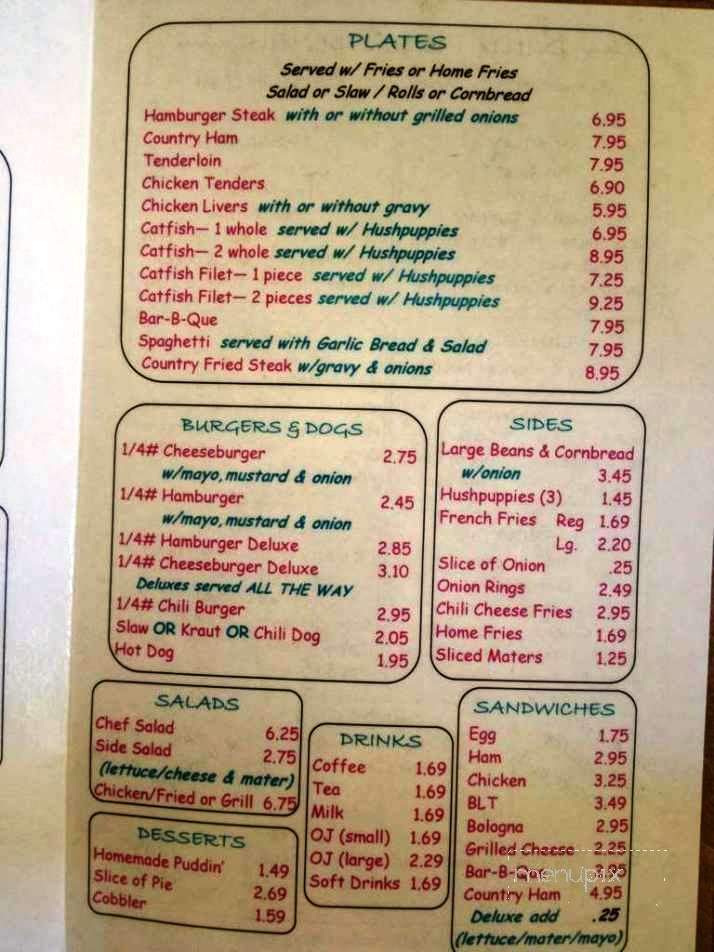 PLATES
Served w/ Fries or Home Fries
Salad or Slaw / Rolls or Cornbread
Hamburger Steak with or without grilled onions 6.95
Country Ham 7.95
Tenderloin 7.95
Chicken Tenders 6.90
Chicken Livers with or without gravy 5.95
Catfish— 1 whole served w/ Hushpuppies 6.95
Catfish— 2 whole served w/ Hushpuppies 8.95
Catfish Filet— 1 piece served w/ Hushpuppies 7.25
Catfish Filet— 2 pieces served w/ Hushpuppies 9.25
Bar-B-Que 7.95
Spaghetti served with Garlic Bread & Salad 7.95
Country Fried Steak w/gravy & onions 8.95
BURGERS & DOGS
1/4# Cheeseburger 2.75
w/mayo, mustard & onion
1/4# Hamburger 2.45
w/mayo, mustard & onion
1/4# Hamburger Deluxe 2.85
1/4# Cheeseburger Deluxe 3.10
Deluxes served ALL THE WAY
1/4# Chili Burger 2.95
Slaw OR Kraut OR Chili Dog 2.05
Hot Dog 1.95
SIDES
Large Beans & Cornbread
w/onion 3.45
Hushpuppies (3) 1.45
French Fries Reg 1.69
Lg. 2.20
Slice of Onion .25
Onion Rings 2.49
Chili Cheese Fries 2.95
Home Fries 1.69
Sliced Maters 1.25
SALADS
Chef Salad 6.25
Side Salad 2.75
(lettuce/cheese & mater)
Chicken/Fried or Grill 6.75
DESSERTS
Homemade Puddin' 1.49
Slice of Pie 2.69
Cobbler 1.59
DRINKS
Coffee 1.69
Tea 1.69
Milk 1.69
OJ (small) 1.69
OJ (large) 2.29
Soft Drinks 1.69
SANDWICHES
Egg 1.75
Ham 2.95
Chicken 3.25
BLT 3.49
Bologna 2.95
Grilled Cheese 2.25
Bar-B-Que
Country Ham 4.95
Deluxe add .25
(lettuce/mater/mayo)
menupix